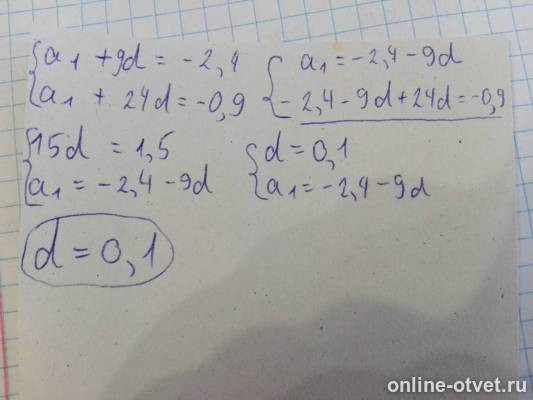 {a1 + 9d = -2,4
{a1 + 24d = -0,9
{a1 = -2,4 - 9d
{-2,4 - 9d + 24d = -0,9
{15d = 1,5
{a1 = -2,4 - 9d
{d = 0,1
{a1 = -2,4 - 9d
d = 0,1
online-otvet.ru